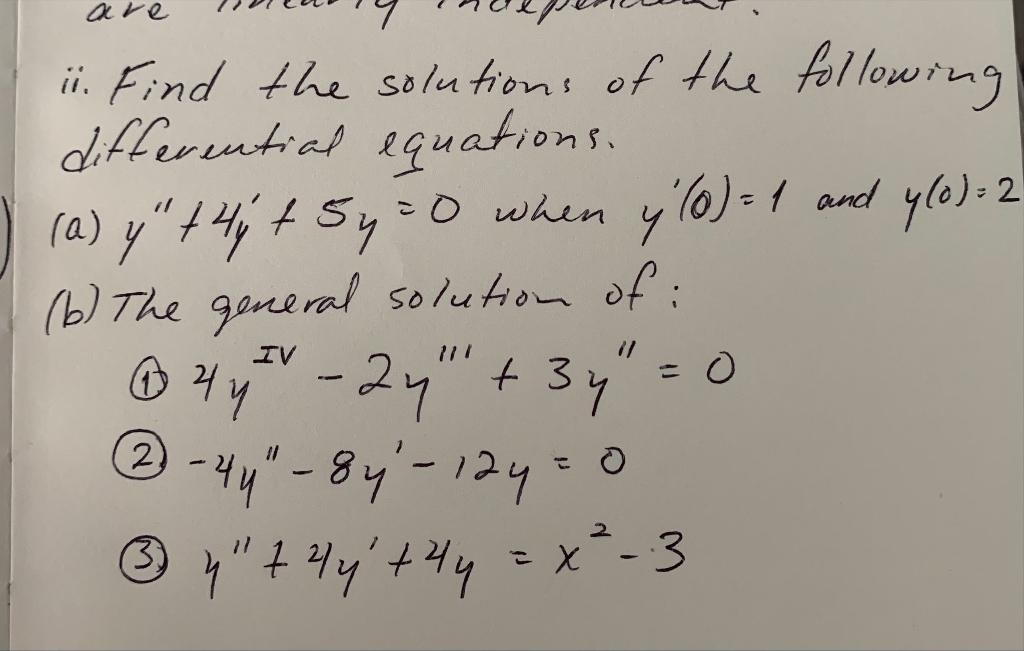 are linearly independent.
ii. Find the solutions of the following
differential equations.
(a) y'' + 4y' + 5y = 0 when y'(0) = 1 and y(0) = 2
(b) The general solution of :
① 4y^IV - 2y''' + 3y'' = 0
② -4y'' - 8y' - 12y = 0
③ y'' + 4y' + 4y = x² - 3